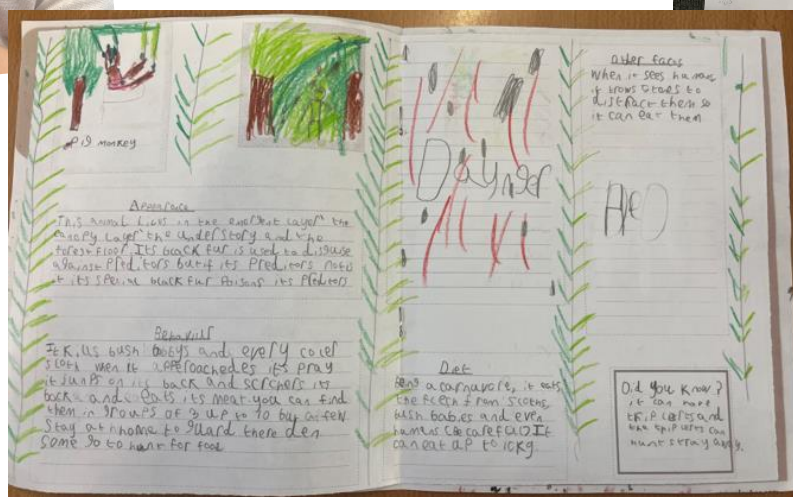 Pig monkey
Apperince
This animal lives in the emergent layer the
canopy layer the understory and the
forest floor. Its black fur is used to disguse
against preditors but if its preditors notis
it its special black fur poisons its preditors
Behaviour
It kills bush babys and every
sloth when it approachedes its pray
it jumps on its back and scrchers its
back and eats its meat you can find
them in groups of 3 up to 10 but a few
stay at home to guard there den
some go to hunt for food
Daynger
Diet
a carnuvore, it eats
the flesh from sloths
bush babies and even
humans (be careful) It
can eat up to 10kg.
other facts
When it sees humans
it trows stones to
distract them so
it can eat them
Did you know?
it can have
and
the can
hunt stray away.